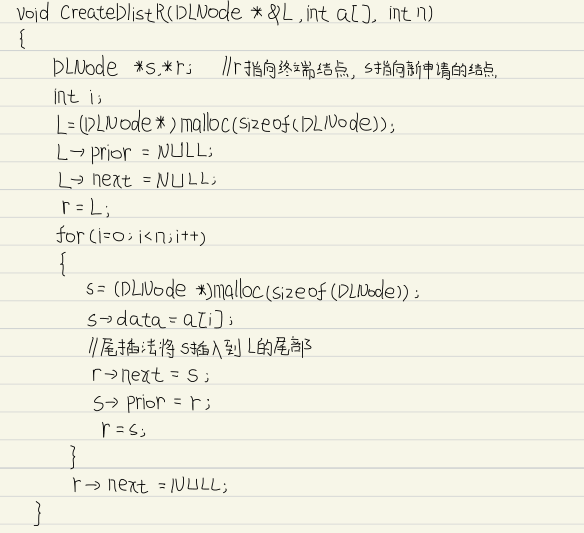 void CreateDlistR(DLNode *&L,int a[], int n)
{
DLNode *s,*r; //r指向终端结点, s指向新申请的结点
int i;
L=(DLNode*)malloc(sizeof(DLNode));
L→prior = NULL;
L→next = NULL;
r=L;
for(i=0;i<n;i++)
{
s=(DLNode *)malloc(sizeof(DLNode));
s→data=a[i];
//尾插法将s插入到L的尾部
r→next = s;
s→prior = r;
r=s;
}
r→next=NULL;
}